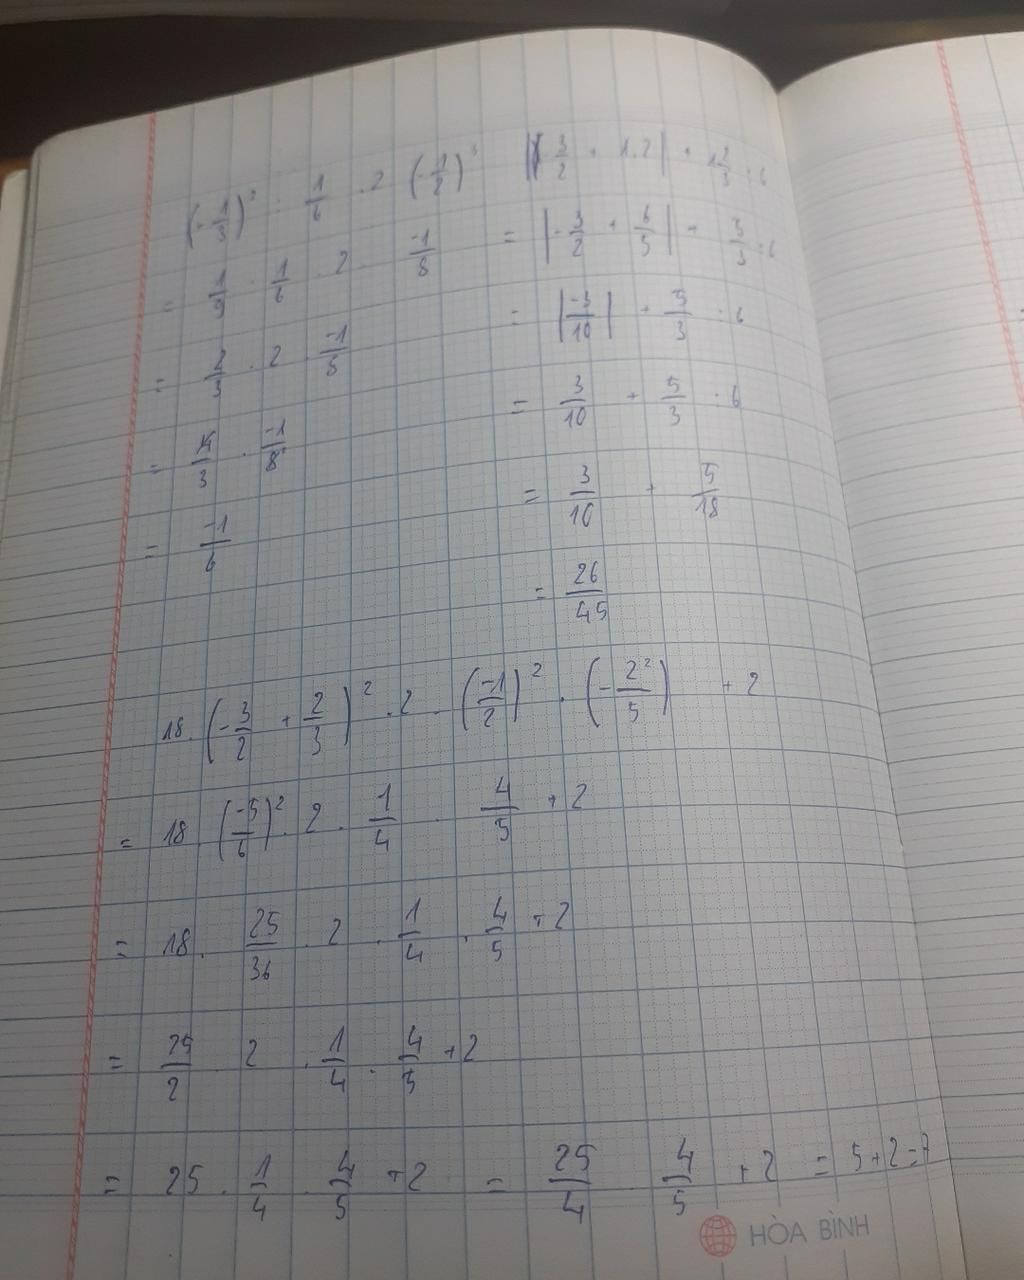 (-1/3)² : 1/6 . 2 (-1/2)³
= 1/9 : 1/6 . 2 . -1/8
= 2/3 . 2 . -1/8
= 4/3 . -1/8
= -1/6
|-3/2 + 1.2| + 1 2/3 : 6
= |-3/2 + 6/5| + 5/3 : 6
= |-3/10| + 5/3 : 6
= 3/10 + 5/3 : 6
= 3/10 + 5/18
= 26/45
18. (-3/2 + 2/3)² . 2 . (-1/2)² . (-2²/5) + 2
= 18 . (-5/6)² . 2 . 1/4 . 4/5 + 2
= 18 . 25/36 . 2 . 1/4 . 4/5 + 2
= 25/2 . 2 . 1/4 . 4/5 + 2
= 25 . 1/4 . 4/5 + 2 = 25/4 . 4/5 + 2 = 5 + 2 = 7
HÒA BÌNH